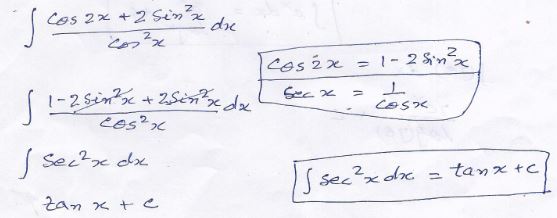 ∫ (cos 2x + 2 sin²x) / cos²x dx
cos 2x = 1 - 2 sin²x
sec x = 1 / cos x
∫ (1 - 2 sin²x + 2 sin²x) / cos²x dx
∫ sec²x dx
∫ sec²x dx = tan x + c
tan x + c